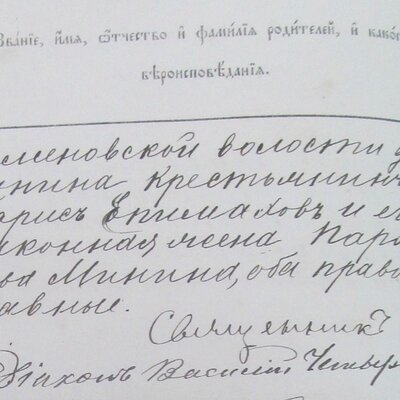 Зва́нїе, и҆́мѧ, ѻ҆́тчество и҆ фамилїѧ роди́телей, и҆ како́
вѣроисповѣ́данїѧ.
меновской волости д
нина крестьянинъ
арисъ Епимаховъ и е
аконная жена Пара
ва Минина, оба право
авные.
Священникъ
Діаконъ Василій Четыр